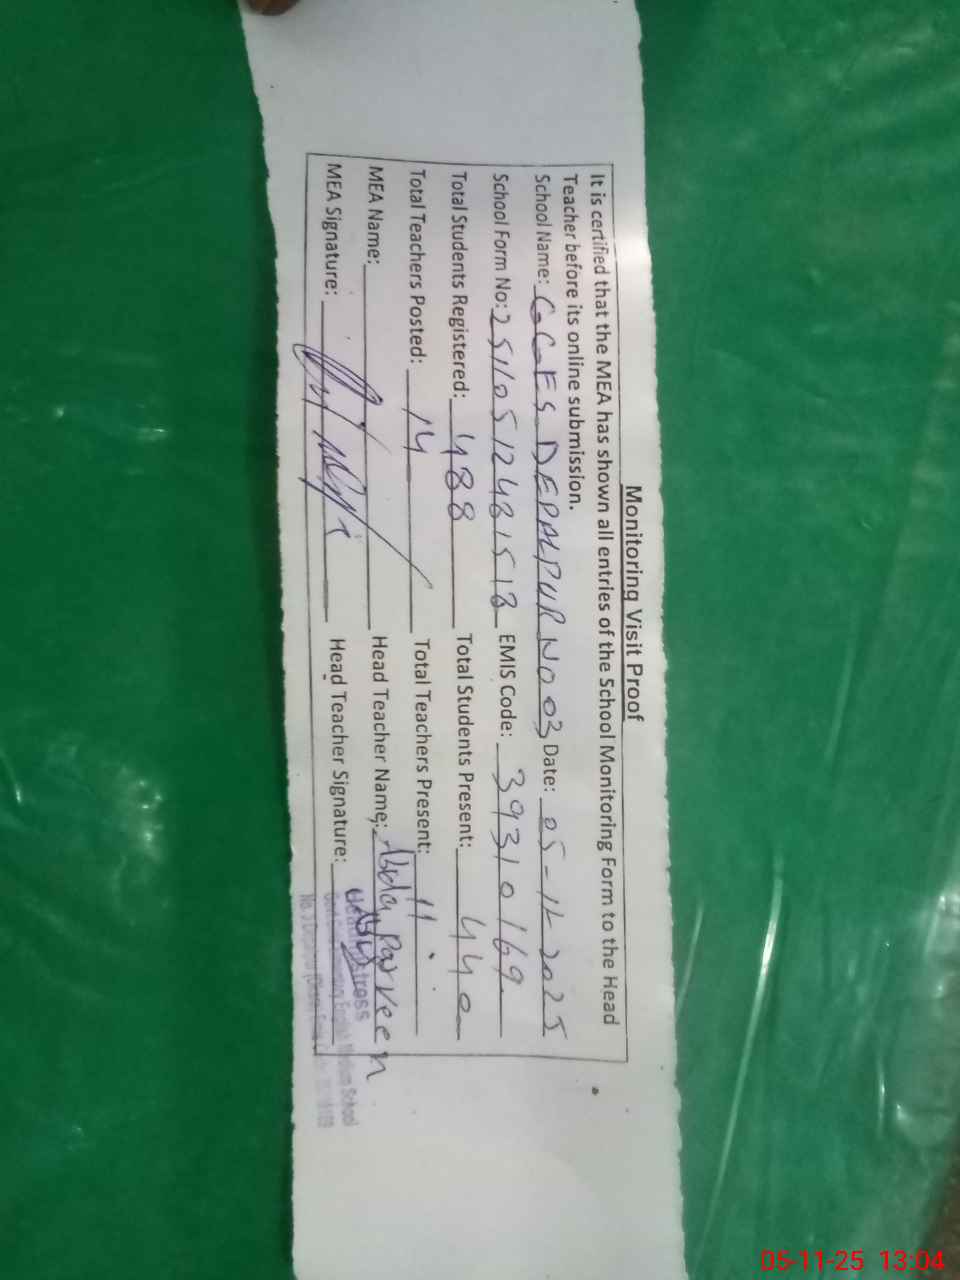 Monitoring Visit Proof
It is certified that the MEA has shown all entries of the School Monitoring Form to the Head
Teacher before its online submission.
School Name: GGES DEPALPUR NO 03 Date: 05-11-2025
School Form No: 25110512481513 EMIS Code: 39310169
Total Students Registered: 488 Total Students Present: 440
Total Teachers Posted: 14 Total Teachers Present: 11
MEA Name: Head Teacher Name: Abda Parveen
MEA Signature: Head Teacher Signature:
English Medium School
05-11-25 13:04